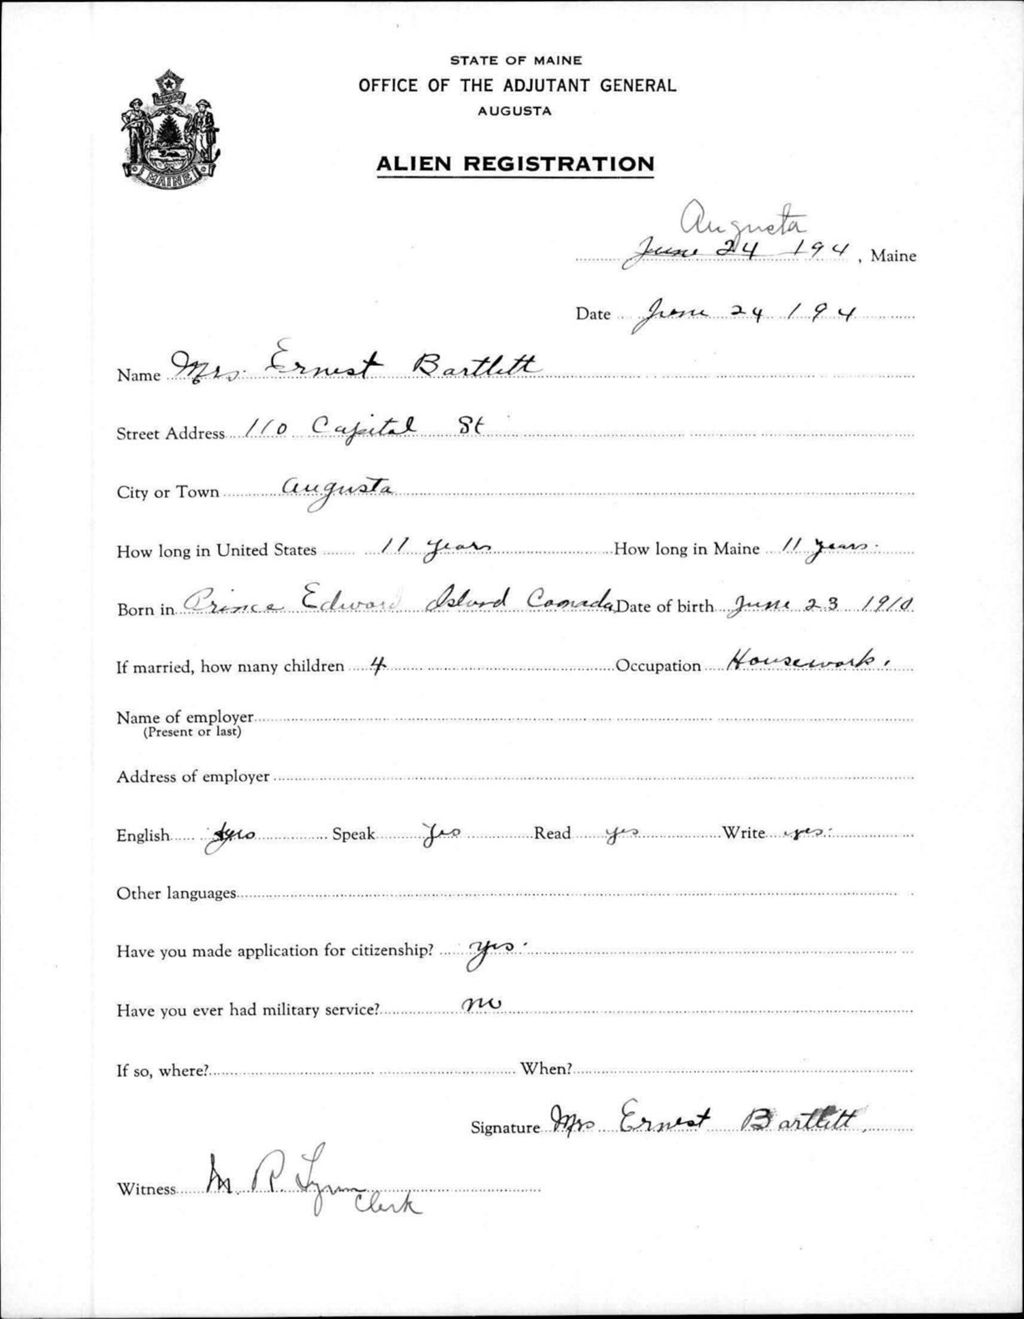 STATE OF MAINE
OFFICE OF THE ADJUTANT GENERAL
AUGUSTA
MAINE
ALIEN REGISTRATION
Augusta
June 24 194, Maine
Date June 24 194
Name Mrs. Ernest Bartlett
Street Address 110 Capital St
City or Town Augusta
How long in United States 11 years How long in Maine 11 years.
Born in Prince Edward Island Canada Date of birth June 23 1910
If married, how many children 4 Occupation Housework.
Name of employer
(Present or last)
Address of employer
English yes Speak yes Read yes Write yes.
Other languages
Have you made application for citizenship? yes.
Have you ever had military service? no
If so, where? When?
Signature Mrs Ernest Bartlett.
Witness M. R. Lynn
Clerk